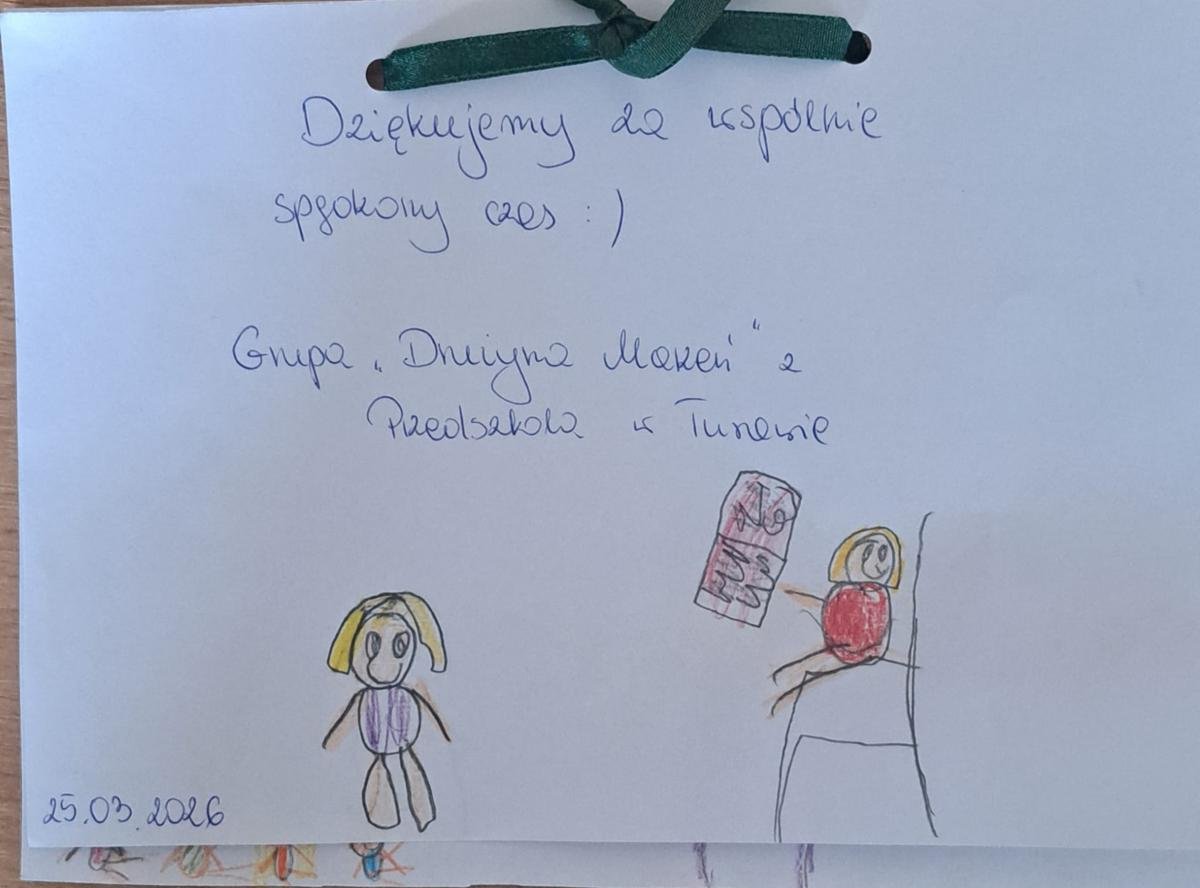 Dziękujemy za wspólnie
spędzony czas :)
Grupa „Drużyna Marzeń" z
Przedszkola w
25.03.2026